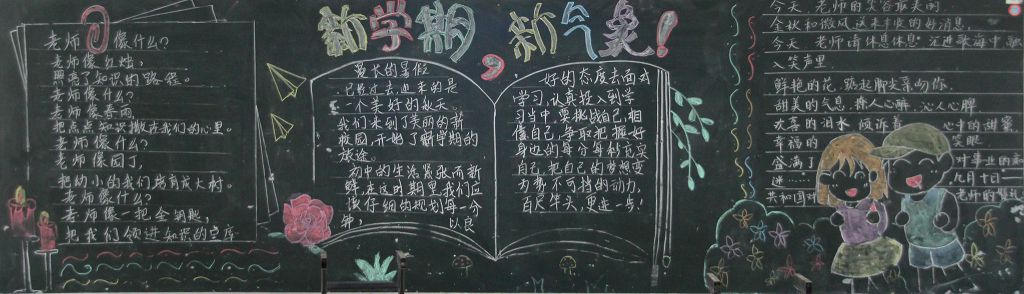 新学期,新气象!
老师像什么?
老师像红烛,
照亮了知识的路径。
老师像什么?
老师像春雨,
把点点知识撒在我们的心里。
老师像什么?
老师像园丁,
把幼小的我们培育成大树。
老师像什么?
老师像一把金钥匙,
把我们领进知识的宝库
漫长的暑假
已经过去,迎来的是
一个美好的秋天。
我们来到了美丽的新
校园,开始了新学期的
旅途。
初中的生活紧张而新
鲜,在这时期里,我们应
该仔细的规划每一分
钟, 以良
好的态度去面对
学习,认真投入到学
习当中,要挑战自己,相
信自己,争取把握好
身边的每分每秒充实
自己,把自己的梦想变
为势不可挡的动力,
百尺竿头,更进一步!
今天,老师的笑容最美丽
金秋和微风送来丰收的好消息
今天 老师请休息休息,沉进歌海中,融
入笑声里
鲜艳的花,踮起脚尖亲吻你,
甜美的气息,撩人心醉,沁人心脾
欢喜的泪水 倾诉着 心中的甜蜜
幸福的 笑眼
盈满了 对事业的
迷…… 九月十日
共和国对 老师的